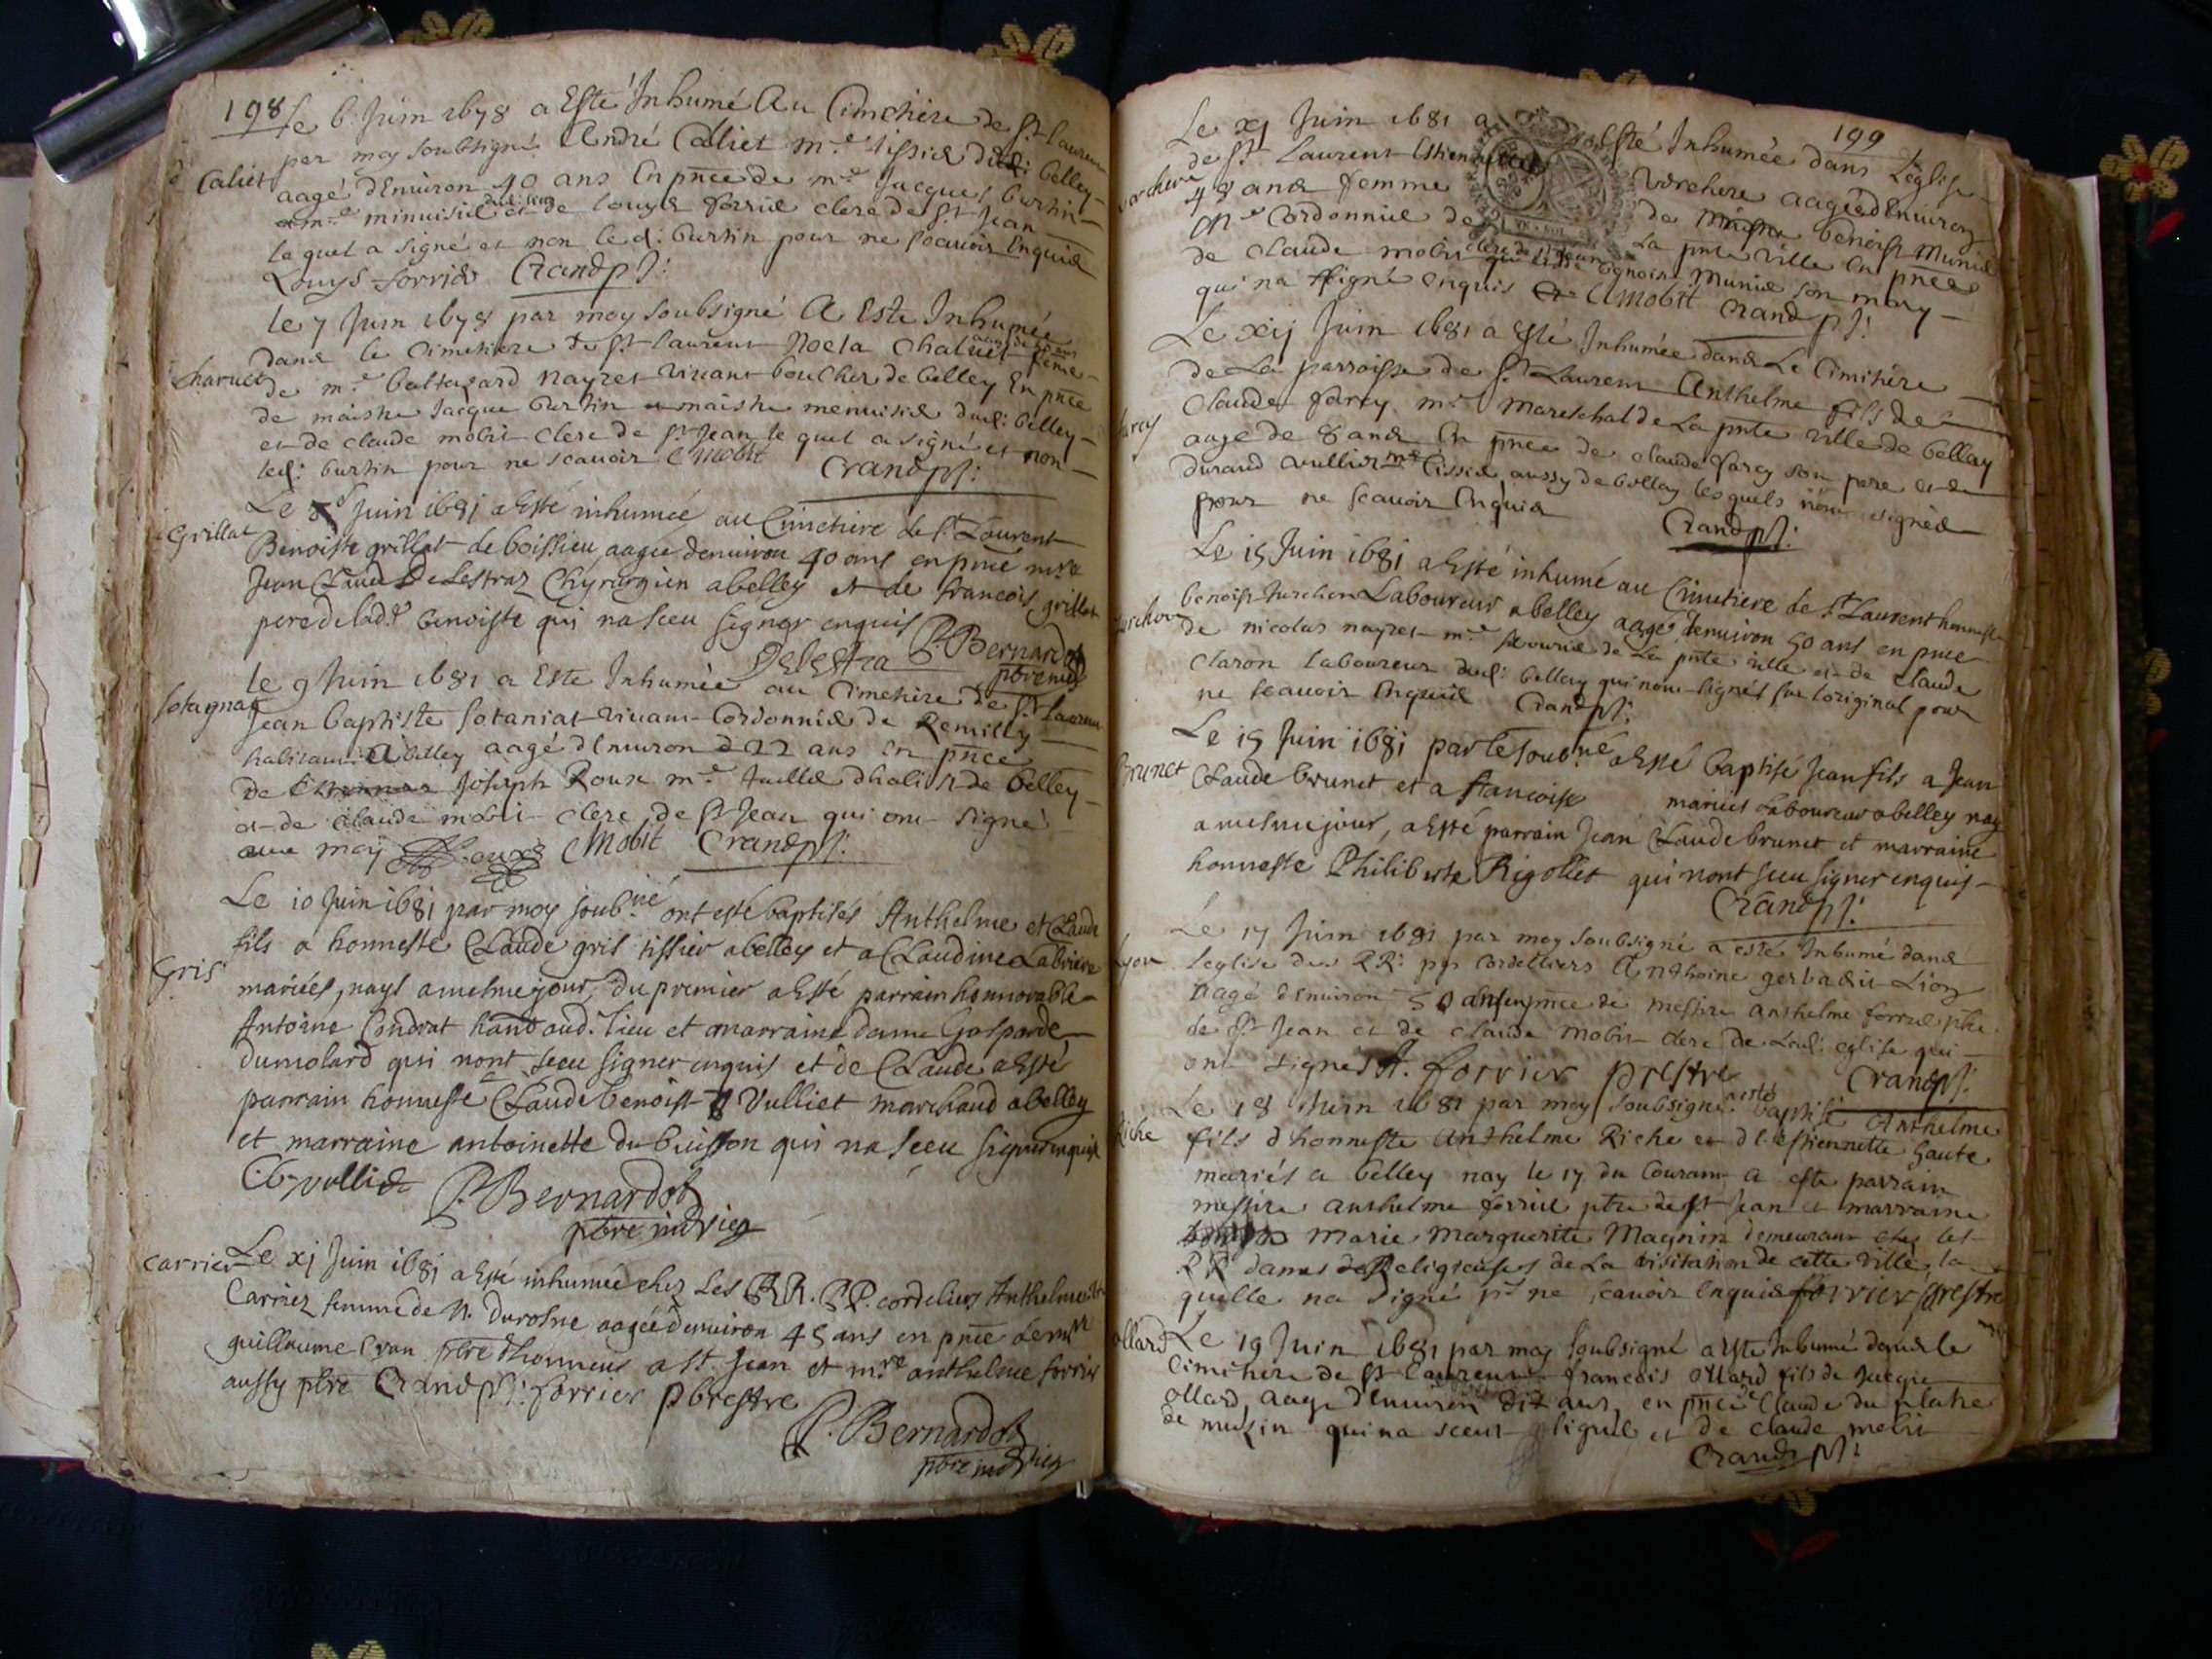 198
Le 6 Juin 1678 a Esté Inhumé Au Cimetiere de St Laurent
par moy soubsigné André Caliet m.e tissier dud: belley
Caliet
aagé d'Enuiron 40 ans En pñce de m.e Jacques burtin
m.e minuisier et de Louys forrier clerc de St Jean
lequel a signé et non led: burtin pour ne sçauoir Enquis
Louys forrier Crand pbr:
le 7 Juin 1678 par moy soubsigné A Este Inhumée
dans le Cimetiere de St Laurent Noela Chaluet feme
Charuet
de m.e baltazard nayret viuant boucher de belley En pñce
de maistre Jacque burtin maistre menuisier dud: belley
et de claude mobit clerc de St Jean le quel a signé et non
led: burtin pour ne scauoir C mobit Crand pbr:
Le 8 Juin 1681 a Esté inhumée au Cimetiere de St Laurent
Grillat
Benoiste grillat de boissieu aagée denuiron 40 ans en pnce m.re
Jean Claude Delestraz Chyrurgien a belley et de francois grillat
pere de lad.e benoiste qui na sceu signer enquis
Delestra P. Bernardot
pbre
le 9 Juin 1681 a Este Inhumée au Cimetiere de St Laurent
Sotagnat
Jean baptiste Sotaniat viuant Cordonnier de Remilly
habitant A belley aagé d'Enuiron 22 ans En pñce
de Joseph Roux m.e tailler d'habits de belley
et de claude mobit clerc de St Jean qui ont signé
auec moy C Mobit Crand pbr:
Le 10 Juin 1681 par moy soub.né ont esté baptisés Anthelme et Claude
fils a honneste Claude gris tissier a belley et a Claudine Labriere
Gris
mariés, nays a mesme jour, du premier a Esté parrain honnorable
Antoine Condrat hant aud. lieu et marraine dame Gasparde
dumolard qui nont sceu signer enquis et de Claude a Esté
parrain honneste Claude benoist Vulliet marchand a belley
et marraine antoinette du buisson qui na sceu signer enquis
C b vullier P. Bernardot
pbre
Carrier
Le xj Juin 1681 a Esté inhumée chez Les RR. PP. cordeliers Anthelme
Carriez femme de N. Durosne aagée denuiron 45 ans en pnce de m.re
guillaume Cran pbre d'honneur a St Jean et m.re anthelme forrier
aussy pbre Crand pbr: forrier pbrestre
P. Bernardot
pbre
199
Le xj Juin 1681 a Esté Inhumée dans L'eglise
de St Laurent Estiennette Verchere aagée d'Enuiron
Verchere
48 ans femme de benoist Munier
M.e Cordonnier de la pnte ville En pñce
de claude mobit clerc de St Jean benoist Munier son mary
qui na signé enquis C Mobit Crand pbr:
Le xij Juin 1681 a Esté Inhumée dans Le Cimitiere
de La parroisse de St Laurent Anthelme fils de
Claude farcy m.e Mareschal de La pnte ville de belley
aage de 8 ans En pnce de claude farcy son pere et de
durand vullier m.e tissier aussy de belley lesquels nont signéd
pour ne scauoir Enquis Crand pbr:
Le 15 Juin 1681 a Esté inhumé au Cimetiere de St Laurent honneste
benoist turchon Laboureur a belley aagé denuiron 50 ans en pnce
de nicolas nayret m.e de La pnte ville et de Claude
Claron laboureur dud: belley qui nont signés sur loriginal pour
ne scauoir Enquis Crand pbr:
Le 15 Juin 1681 par le soub.né a Esté baptisé Jean fils a Jean
Brunet
Claude brunet et a francoise mariés Laboureur a belley nay
a mesme jour, a Esté parrain Jean Claude brunet et marraine
honneste Philiberte Rigollet qui nont sceu signer enquis
Crand pbr:
Le 17 Juin 1681 par moy soubsigné a esté Inhumé dans
Lyon
leglise des RR: pps Cordelliers Anthoine gerbadit Lion
aagé d'Enuiron 50 ans en pnce de messire anthelme forrier pbre
de St Jean et de claude Mobit clerc de lad: eglise qui
ont signes A. forrier prestre Crand pbr:
Le 18 Juin 1681 par moy soubsigné esté baptisé Anthelme
Riche
fils d'honneste Anthelme Riche et d'Estiennette haute
mariés a belley nay le 17 du Courant a este parrain
messire anthelme forrier pbre de St Jean et marraine
Marie Marguerite Magnin demeurant chez les
RR dames Religieuses de La visitation de cette ville, la
quelle na signé pr ne scauoir Enquis forrier prestre
Ollard
Le 19 Juin 1681 par moy soubsigné a este Inhumé dans le
Cimetiere de St Laurent francois ollard fils de Jacque
Ollard, aage d'Enuiron dix ans, en pñce de Claude du platre
de musin qui na sceut signer et de claude mobit
Crand pbr: